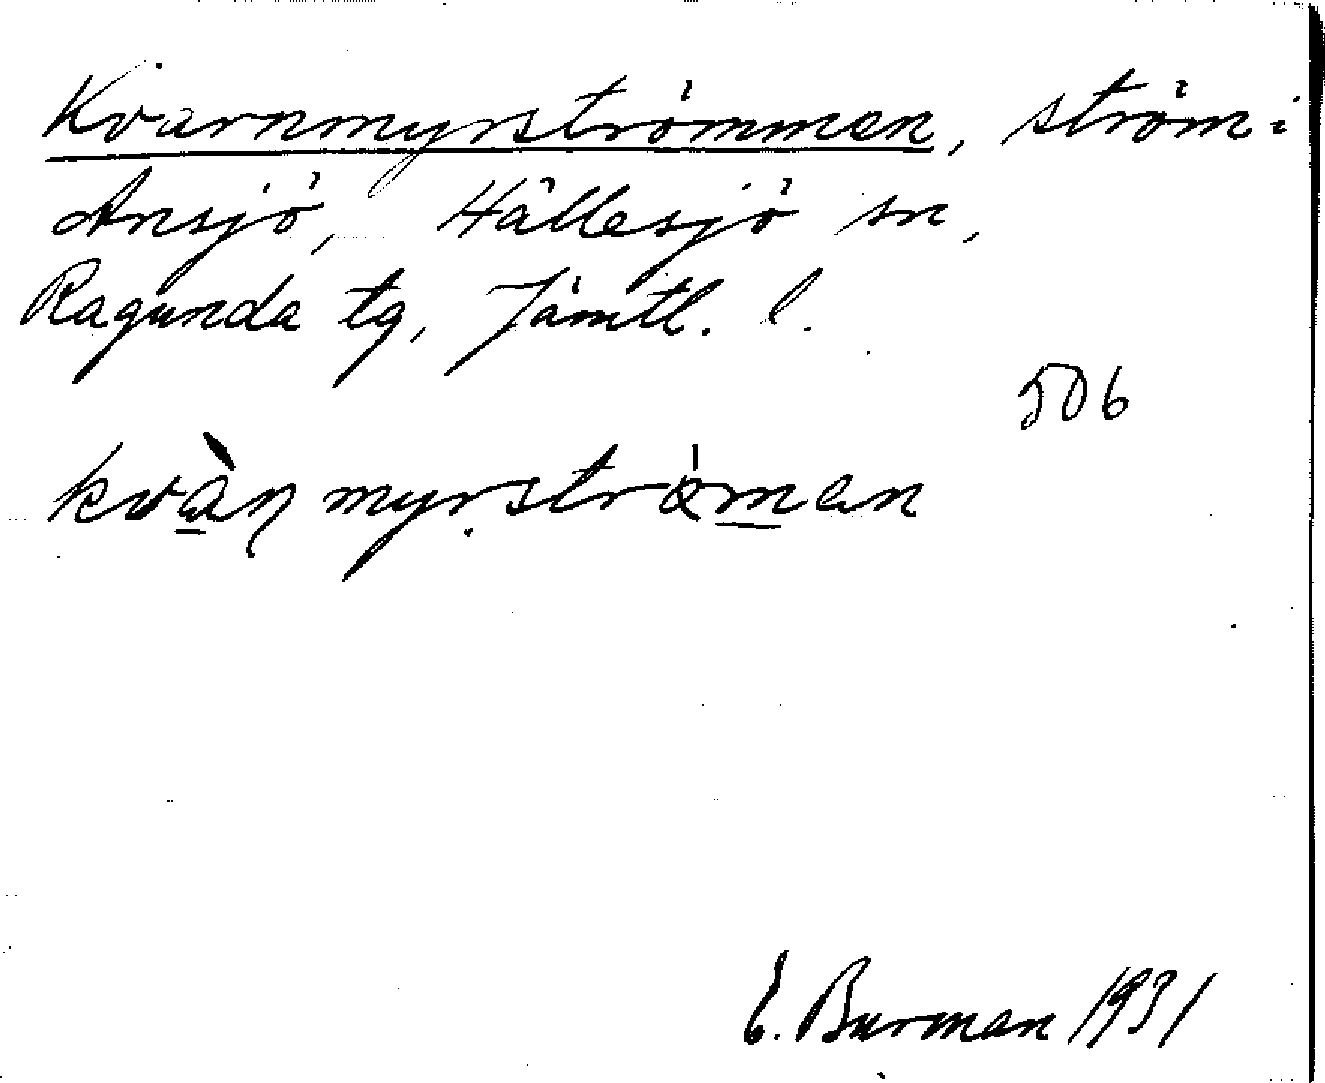 Kvarnmyrströmmen, ström i
Ansjö, Hällesjö sn,
Ragunda tg, Jämtl. l.
506
kvàṉ myrströman
E. Burman 1931